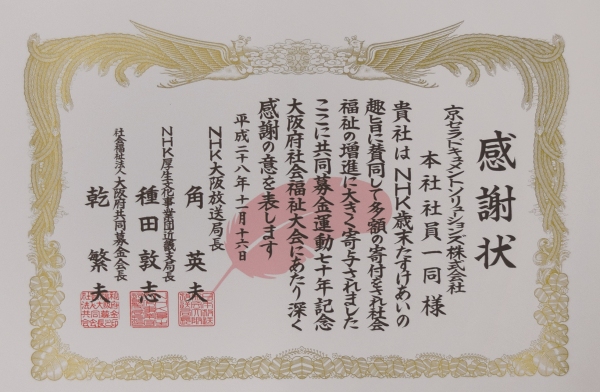 感謝状
京セラドキュメントソリューションズ株式会社
本社社員一同様
貴社はNHK歳末たすけあいの
趣旨に賛同して多額の寄付をされ社会
福祉の増進に大きく寄与されました
ここに共同募金運動七十年記念
大阪府社会福祉大会にあたり深く
感謝の意を表します
平成二十八年十一月十六日
NHK大阪放送局長
角英夫
NHK厚生文化事業団近畿支局長
種田敦志
社会福祉法人大阪府共同募金会長
乾繁夫